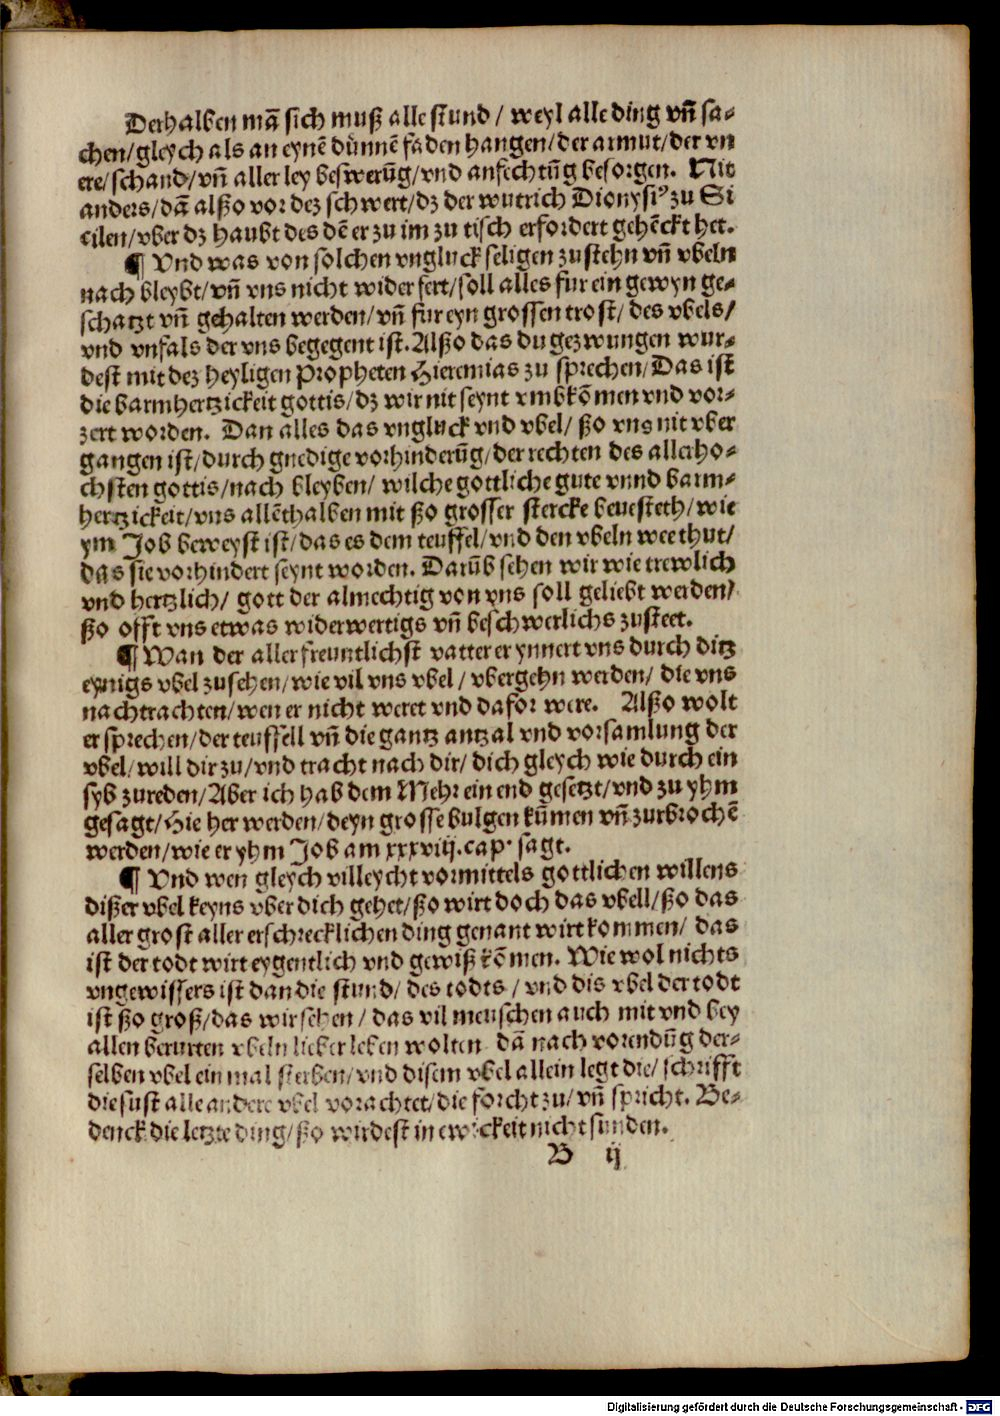 Derhalben mā sich muß alle stund / weyl alle ding vñ sa-
chen/gleych als an eynē dūnnē faden hangen/der armut/der vn
ere/schand/vñ aller ley beswerūg/vnd anfechtūg besorgen. Nit
anders/dā alßo vor dez schwert/dz der wutrich Dionysiꝰ zu Si
cilen/vber dz haubt des dē er zu im zu tisch erfordert gehēckt het.
¶ Vnd was von solchen vngluckseligen zustehn vñ vbeln
nach bleybt/vñ vns nicht widerfert/soll alles fur ein gewyn ge-
schatzt vñ gehalten werden/vñ fur eyn grossen trost/ des vbels/
vnd vnfals der vns begegent ist. Alßo das du gezwungen wur-
dest mit dez heyligen Propheten Hieremias zu sprechen/Das ist
die barmhertzickeit gottis/dz wir nit seynt vmbkōmen vnd vor-
zert worden. Dan alles das vngluck vnd vbel/ ßo vns nit vber
gangen ist/durch gnedige vorhinderūg/der rechten des allerho-
chsten gottis/nach bleyben/ wilche gottliche gute vnnd barm-
hertzickeit/vns allēthalben mit ßo grosser stercke beuesteth/wie
ym Job beweyst ist/das es dem teuffel/vnd den vbeln wee thut/
das sie vorhindert seynt worden. Darūb sehen wir wie trewlich
vnd hertzlich/ gott der almechtig von vns soll geliebt werden/
ßo offt vns etwas widerwertigs vñ beschwerlichs zusteet.
¶ Wan der aller freuntlichst vatter erynnert vns durch ditz
eynigs vbel zusehen/wie vil vns vbel / vbergehn werden/ die vns
nachtrachten/wen er nicht weret vnd dafor were. Alßo wolt
er sprechen/der teuffell vñ die gantz antzal vnd vorsamlung der
vbel/will dir zu/vnd tracht nach dir/dich gleych wie durch ein
syb zureden/Aber ich hab dem Mehr ein end gesetzt/vnd zu yhm
gesagt/Hie her werden/deyn grosse bulgen kūmen vñ zurbrochē
werden/wie er yhm Job am xxxviij. cap. sagt.
¶ Vnd wen gleych villeycht vormittels gottlichen willens
dißer vbel keyns vber dich gehet/ßo wirt doch das vbell/ßo das
aller grost aller erschrecklichen ding genant wirt kommen/ das
ist der todt wirt eygentlich vnd gewiß kōmen. Wie wol nichts
vngewissers ist dan die stund/ des todts / vnd dis vbel der todt
ist ßo groß/das wir sehen / das vil menschen auch mit vnd bey
allen berurten vbeln lieber leben wolten dā nach vorendūg der-
selben vbel ein mal sterben/vnd disem vbel allein legt die/schrifft
die sust alle andere vbel vorachtet/die forcht zu/vñ spricht. Be-
denck die letzte ding/ßo wirdest in ewickeit nicht sunden.
B ij
Digitalisierung gefördert durch die Deutsche Forschungsgemeinschaft - DFG